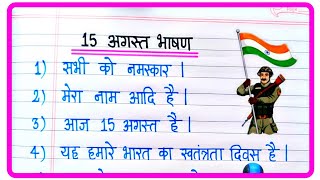 15 अगस्त भाषण
1) सभी को नमस्कार |
2) मेरा नाम आदि है |
3) आज 15 अगस्त है |
4) यह हमारे भारत का स्वतंत्रता दिवस है |